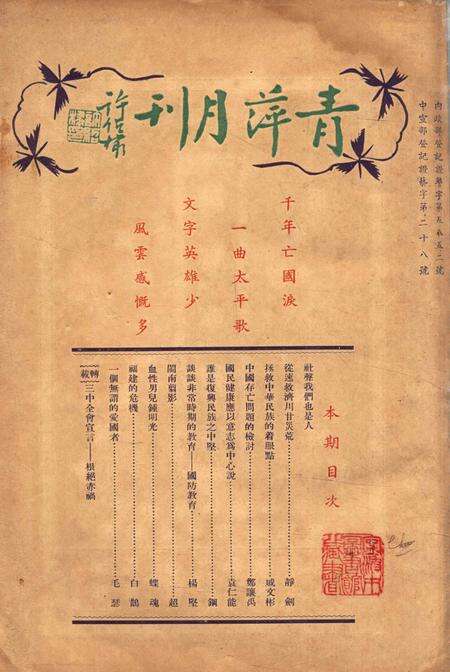 青萍月刊
內政部登記證警字第五五五二號
中宣部登記證藝字第二十八號
千年亡國淚
一曲太平歌
文字英雄少
風雲感慨多
本期目次
社聲我們也是人
從速救濟川甘災荒……靜劍
拯救中華民族的着眼點……戚文彬
中國存亡問題的檢討……鄭讓禹
國民健康應以意志爲中心說……袁仁能
誰是復興民族之中堅……鋼
談談非常時期的教育——國防教育……楊堅
閩南剪影……超
血性男兒鍾明光……蝶魂
福建的危機……白鶴
一個無謂的愛國者……毛瑟
轉載 三中全會宣言——根絕赤禍